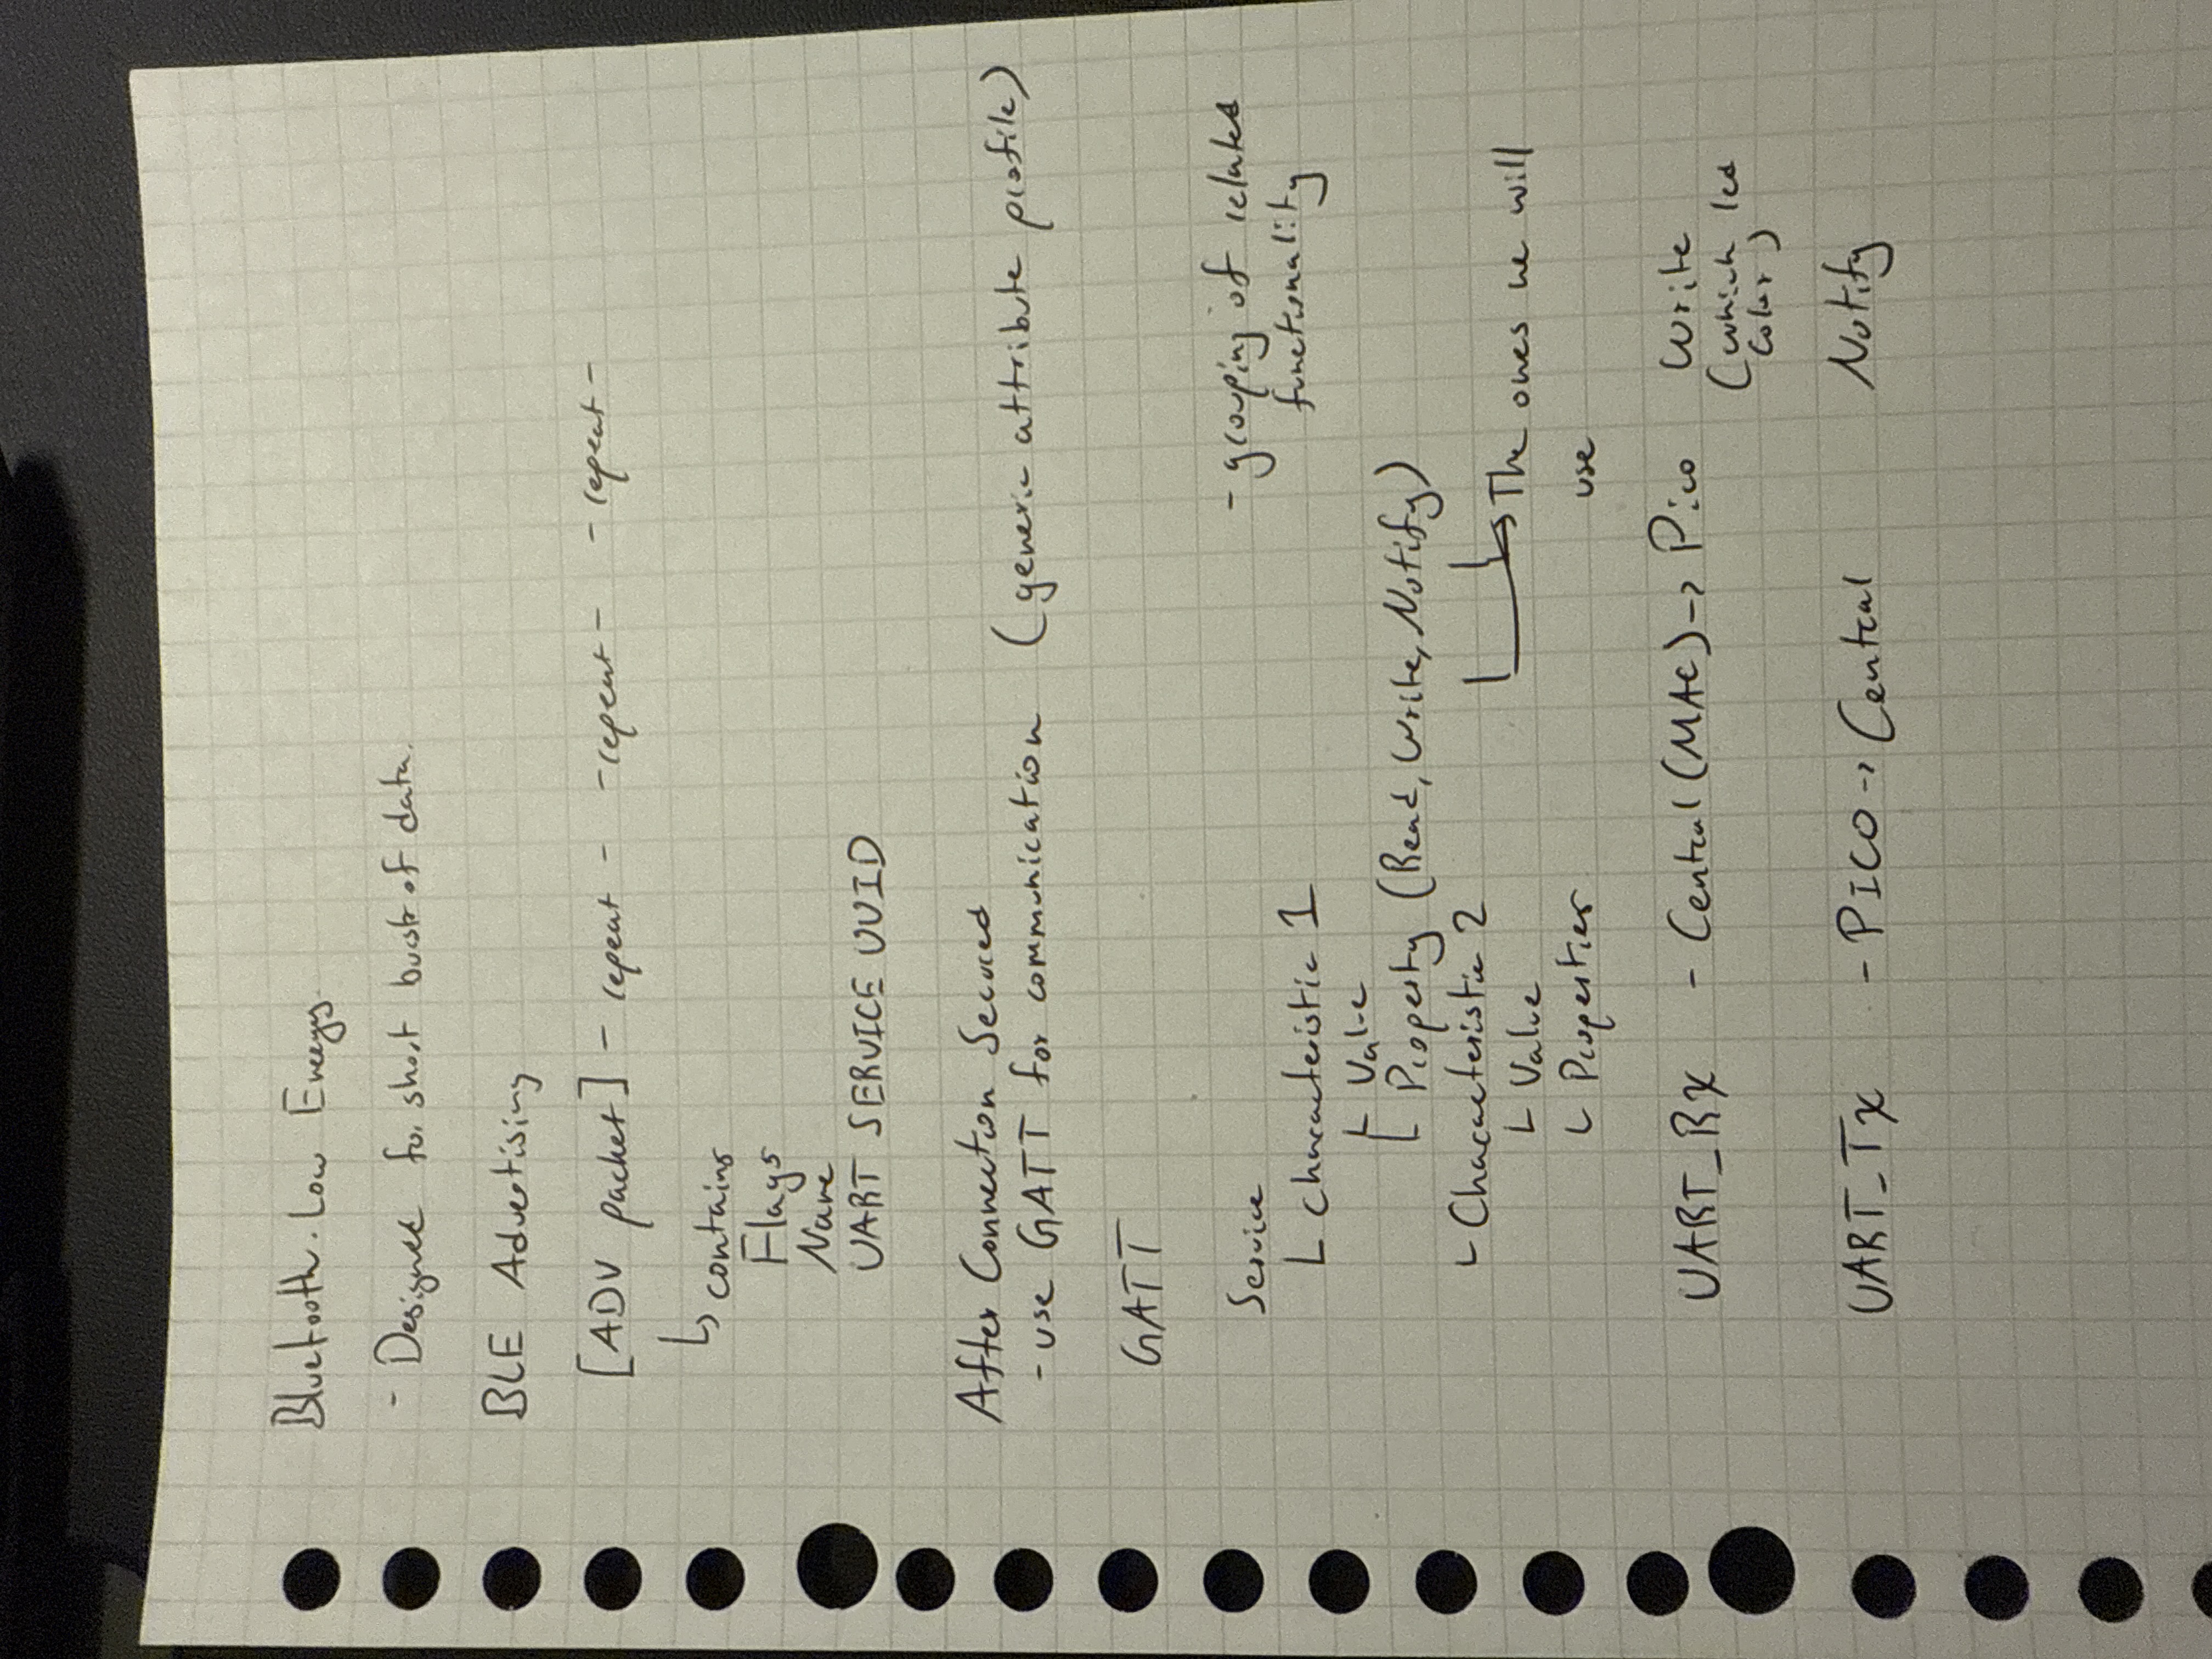 Bluetooth. Low Energy.
- Designed for short bursts of data.
BLE Advertising
[ADV packet] - repeat - - repeat - - repeat -
↳ contains
Flags
Name
UART SERVICE UUID
After Connection Secured
- use GATT for communication (generic attribute profile)
GATT
Service - grouping of related
functionality
└ Characteristic 1
└ Value
└ Property (Read, Write, Notify)
└ Characteristic 2 ↳ The ones we will
└ Value use
└ Properties
UART_Rx - Central (MAC) -> Pico Write
(which led
color)
UART_Tx - PICO -> Central Notify